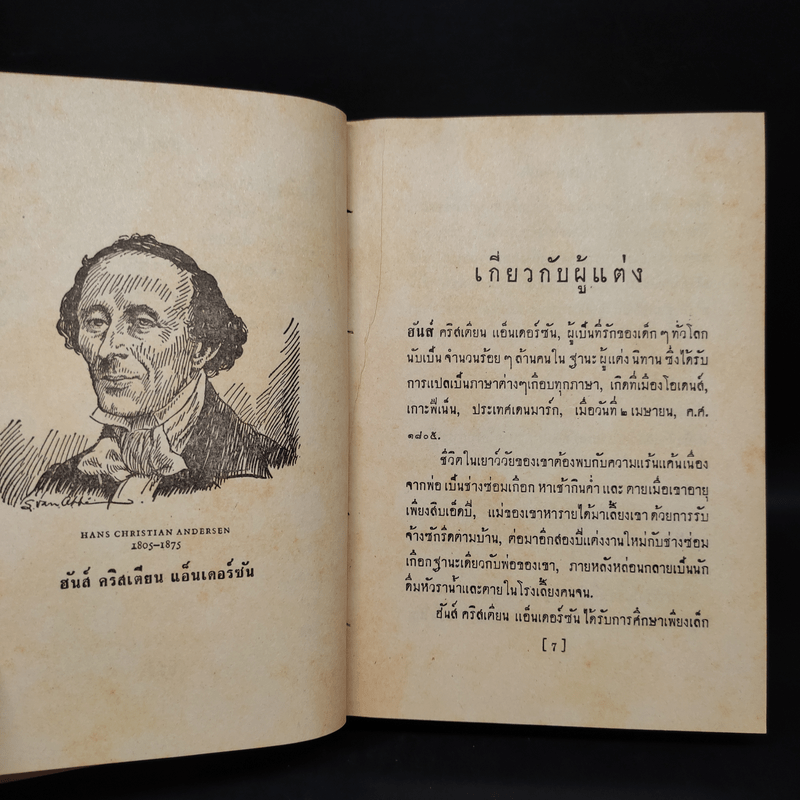 HANS CHRISTIAN ANDERSEN
1805–1875
ฮันส์ คริสเตียน แอ็นเดอร์ซัน
เกี่ยวกับผู้แต่ง
ฮันส์ คริสเตียน แอ็นเดอร์ซัน, ผู้เป็นที่รักของเด็ก ๆ ทั่วโลก
นับเป็น จำนวนร้อย ๆ ล้านคนใน ฐานะ ผู้แต่ง นิทาน ซึ่งได้รับ
การแปลเป็นภาษาต่างๆเกือบทุกภาษา, เกิดที่เมืองโอเดนส์,
เกาะฟึเน็น, ประเทศเดนมาร์ก, เมื่อวันที่ ๒ เมษายน, ค.ศ.
๑๘๐๕.
ชีวิตในเยาว์วัยของเขาต้องพบกับความแร้นแค้นเนื่อง
จากพ่อ เป็นช่างซ่อมเกือก หาเช้ากินค่ำ และ ตายเมื่อเขาอายุ
เพียงสิบเอ็ดปี, แม่ของเขาหารายได้มาเลี้ยงเขา ด้วยการรับ
จ้างซักรีดตามบ้าน, ต่อมาอีกสองปีแต่งงานใหม่กับช่างซ่อม
เกือกฐานะเดียวกับพ่อของเขา, ภายหลังหล่อนกลายเป็นนัก
ดื่มหัวราน้ำและตายในโรงเลี้ยงคนจน.
ฮันส์ คริสเตียน แอ็นเดอร์ซัน ได้รับการศึกษาเพียงเล็ก
[ 7 ]